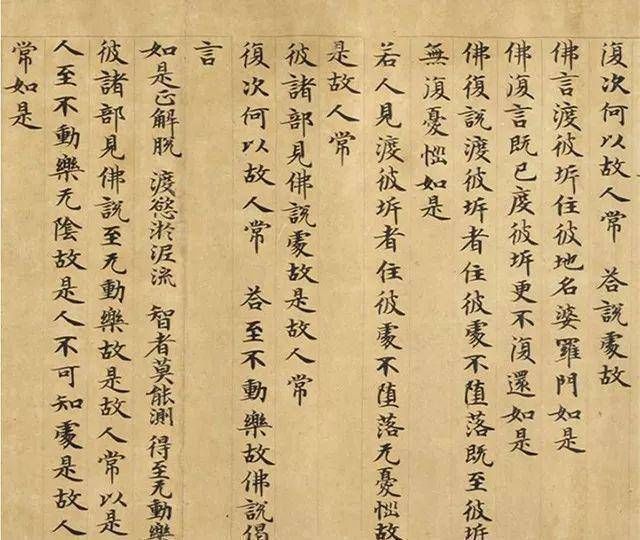 復次何以故人常 荅說處故
佛言渡彼坼住彼地名婆羅門如是
佛復言既已度彼坼更不復還如是
佛復說渡彼坼者住彼處不墮落既至彼坼
無復憂惱如是
若人見渡彼坼者住彼處不墮落无憂惱故
是故人常
彼諸部見佛說處故是故人常
復次何以故人常 荅至不動樂故佛說偈
言
如是正解脫 渡慾淤泥流 智者莫能測 得至无動樂
彼諸部見佛說至无動樂故是故人常以是
人至不動樂无陰故是人不可知處是故人
常如是